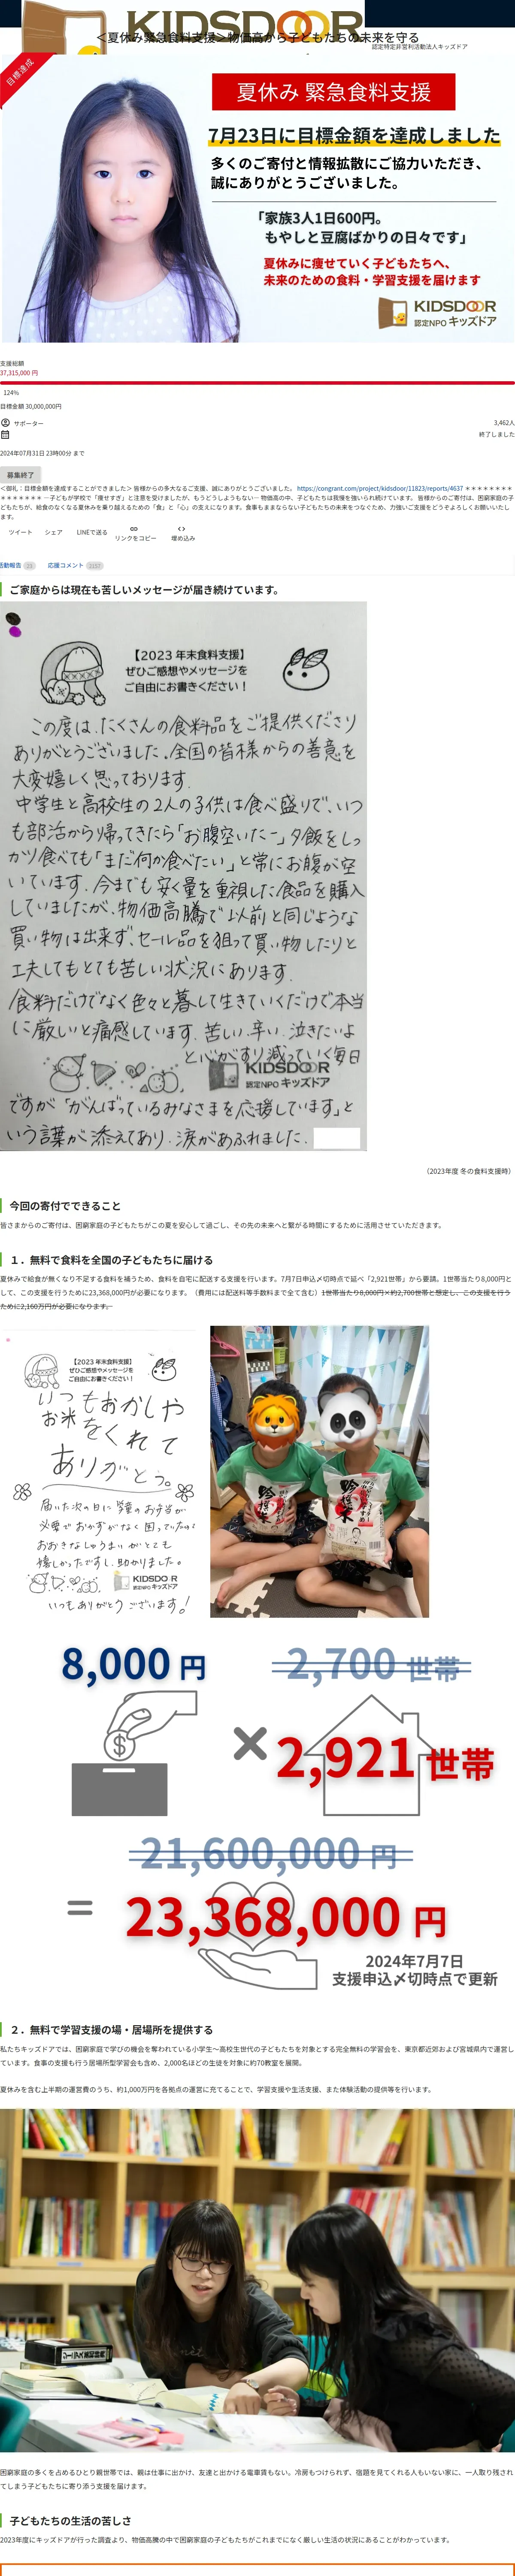 KIDSDOOR
＜夏休み緊急食料支援＞物価高から子どもたちの未来を守る
認定特定非営利活動法人キッズドア
目標達成
夏休み 緊急食料支援
7月23日に目標金額を達成しました
多くのご寄付と情報拡散にご協力いただき、
誠にありがとうございました。
「家族3人1日600円。
もやしと豆腐ばかりの日々です」
夏休みに痩せていく子どもたちへ、
未来のための食料・学習支援を届けます
KIDSDOOR
認定NPO キッズドア
支援総額
37,315,000 円
124%
目標金額 30,000,000円
サポーター
3,462人
終了しました
2024年07月31日 23時00分 まで
募集終了
＜御礼：目標金額を達成することができました＞ 皆様からの多大なるご支援、誠にありがとうございました。 https://congrant.com/project/kidsdoor/11823/reports/4637 ＊＊＊＊＊＊＊＊
＊＊＊＊＊＊＊ ―子どもが学校で「痩せすぎ」と注意を受けましたが、もうどうしようもない― 物価高の中、子どもたちは我慢を強いられ続けています。 皆様からのご寄付は、困窮家庭の子
どもたちが、給食のなくなる夏休みを乗り越えるための「食」と「心」の支えになります。食事もままならない子どもたちの未来をつなぐため、力強いご支援をどうぞよろしくお願いいたし
ます。
ツイート シェア LINEで送る リンクをコピー 埋め込み
活動報告 23 応援コメント 1157
ご家庭からは現在も苦しいメッセージが届き続けています。
【2023 年末食料支援】
ぜひご感想やメッセージを
ご自由にお書きください！
この度は、たくさんの食料品をご提供くださり
ありがとうございました。全国の皆様からの善意を
大変嬉しく思っております。
中学生と高校生の2人の子供は食べ盛りで、いつ
も部活から帰ってきたら「お腹空いたー」夕飯をしっ
かり食べても「まだ何か食べたい」と常にお腹が空
いています。今までも安く量を重視した食品を購入
していましたが、物価高騰で以前と同じような
買い物は出来ず、セール品を狙って買い物したりと
工夫してもとても苦しい状況にあります。
食料だけでなく色々と暮して生きていくだけで本当
に厳しいと痛感しています。苦しい、辛い、泣きたいよ
KIDSDOOR
認定NPO キッズドア
ですが「がんばっているみなさまを応援しています」と
いう言葉が添えてあり、涙があふれました。
（2023年度 冬の食料支援時）
今回の寄付でできること
皆さまからのご寄付は、困窮家庭の子どもたちがこの夏を安心して過ごし、その先の未来へと繋がる時間にするために活用させていただきます。
１．無料で食料を全国の子どもたちに届ける
夏休みで給食が無くなり不足する食料を補うため、食料を自宅に配送する支援を行います。7月7日申込〆切時点で延べ「2,921世帯」から要請。1世帯当たり8,000円と
して、この支援を行うために23,368,000円が必要になります。（費用には配送料等手数料まで全て含む）1世帯当たり8,000円×約2,700世帯と想定し、この支援を行う
ために2,160万円が必要になります。
【2023 年末食料支援】
ぜひご感想やメッセージを
ご自由にお書きください！
いつもおかしや
お米をくれて
ありがとう。
届いた次の日に学童のお弁当が
必要でおかずがなく困っていたので
おおきなしゅうまいがとても
嬉しかったですし、助かりました。
KIDSDOOR
認定NPO キッズドア
いつもありがとうございます！
8,000 円
2,700 世帯
2,921 世帯
21,600,000 円
23,368,000 円
2024年7月7日
支援申込〆切時点で更新
２．無料で学習支援の場・居場所を提供する
私たちキッズドアでは、困窮家庭で学びの機会を奪われている小学生～高校生世代の子どもたちを対象とする完全無料の学習会を、東京都近郊および宮城県内で運営し
ています。食事の支援も行う居場所型学習会も含め、2,000名ほどの生徒を対象に約70教室を展開。
夏休みを含む上半期の運営費のうち、約1,000万円を各拠点の運営に充てることで、学習支援や生活支援、また体験活動の提供等を行います。
困窮家庭の多くを占めるひとり親世帯では、親は仕事に出かけ、友達と出かける電車賃もない。冷房もつけられず、宿題を見てくれる人もいない家に、一人取り残され
てしまう子どもたちに寄り添う支援を届けます。
子どもたちの生活の苦しさ
2023年度にキッズドアが行った調査より、物価高騰の中で困窮家庭の子どもたちがこれまでになく厳しい生活の状況にあることがわかっています。